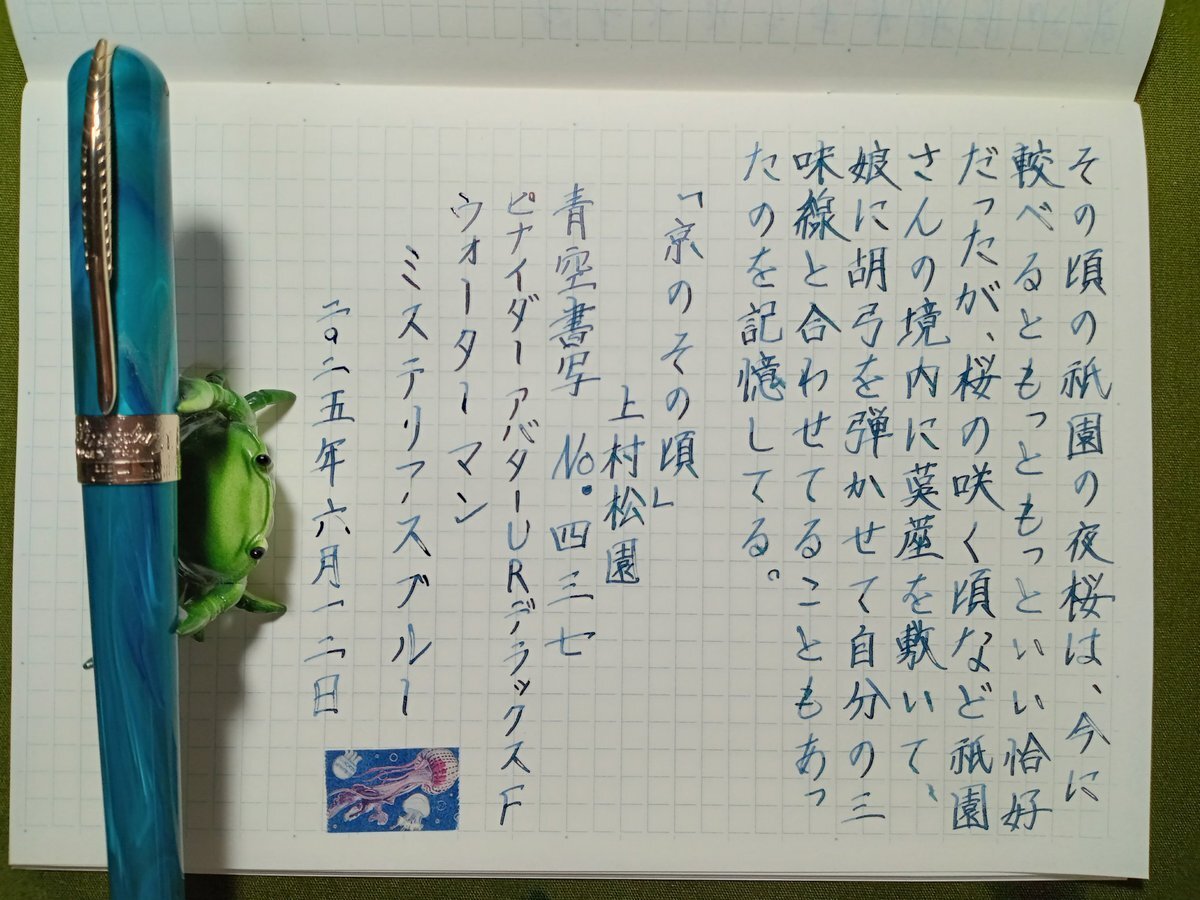 その頃の祇園の夜桜は、今に
較べるともっともっといい恰好
だったが、桜の咲く頃など祇園
さんの境内に茣蓙を敷いて、
娘に胡弓を弾かせて自分の三
味線と合わせてることもあっ
たのを記憶してる。
「京のその頃」
上村松園
青空書写 No.四三七
ピナイダー アバターURデラックスF
ウォーターマン
ミステリアスブルー
二〇二五年六月一二日